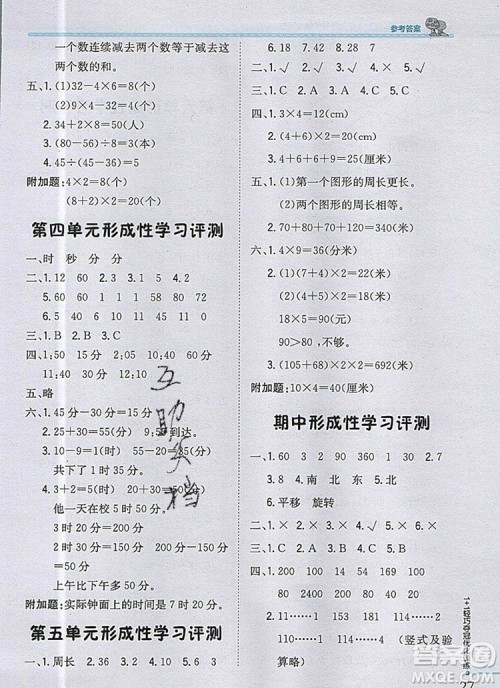 参考答案
一个数连续减去两个数等于减去这
两个数的和。
五、1.(1)32-4×6=8(个)
(2)32-4×2=24(个)
2.34+2×8=50(人)
3.(80-56)÷8=3(本)
4.45÷(45-36)=5
附加题:4×2=8(个)
(8+2)×2=20(个)
第四单元形成性学习评测
一、时 秒 分 分
二、1.12 60 2.D 3.12 5 4.2
5.60 60 120 180 1 2
6.60 7.50 8.20
三、1.B 2.B 3.C
四、1.6:00 2.15 3.40 4.8:30
11:40 30分 12:10
五、略
六、1.90-60=30(下)
2.25+30=55(分) 9:55到达。
3.10-9=1(时) 55-20=35(分)
共下了1时35分。
4.3+2=5(时) 20+30=50(分)
他一天在校5时50分。
3时20分=200分
2时30分=150分
上午比下午多50分。
附加题:实际钟面上的时间是7时20分。
第五单元形成性学习评测
一、1.周长 2.36 3.22 4.20 5.20
6.18 7.18 8.34
二、1.√ 2.× 3.× 4.× 5.√
三、1.C 2.B 3.C
四、1.3×4=12(cm)
2.(4+6)×2=20(厘米)
3.(6+3)×2+7=25(厘米)
五、1.(1)第一个图形的周长更长。
(2)两个图形的周长一样长。
2.70+80+70+120=340(米)
六、1.(7+4)×2=22(厘米)
2.(50+40)×2=180(米)
180÷2=90(米)
3.(4+5)×2=18(米)
18×5=90(元)
90>80(元),
不够。
4.(105+68)×2=346(米)
附加题:10×4=40(厘米)
期中形成性学习评测
一、1.60 3 90 360 30 2.7
3.8 4.南 北 东 5.北
6.平移 旋转
二、1.× 2.× 3.× 4.√ 5.√
三、1.C 2.B 3.A 4.C 5.C
四、1.24 31 23 40 15 12
2.100 114……1 110……3
131……1 114……4 (竖式及验
算略)
互
助
文
档
1+1轻巧夺冠优化训练
27
答案圈
MXQE.COM